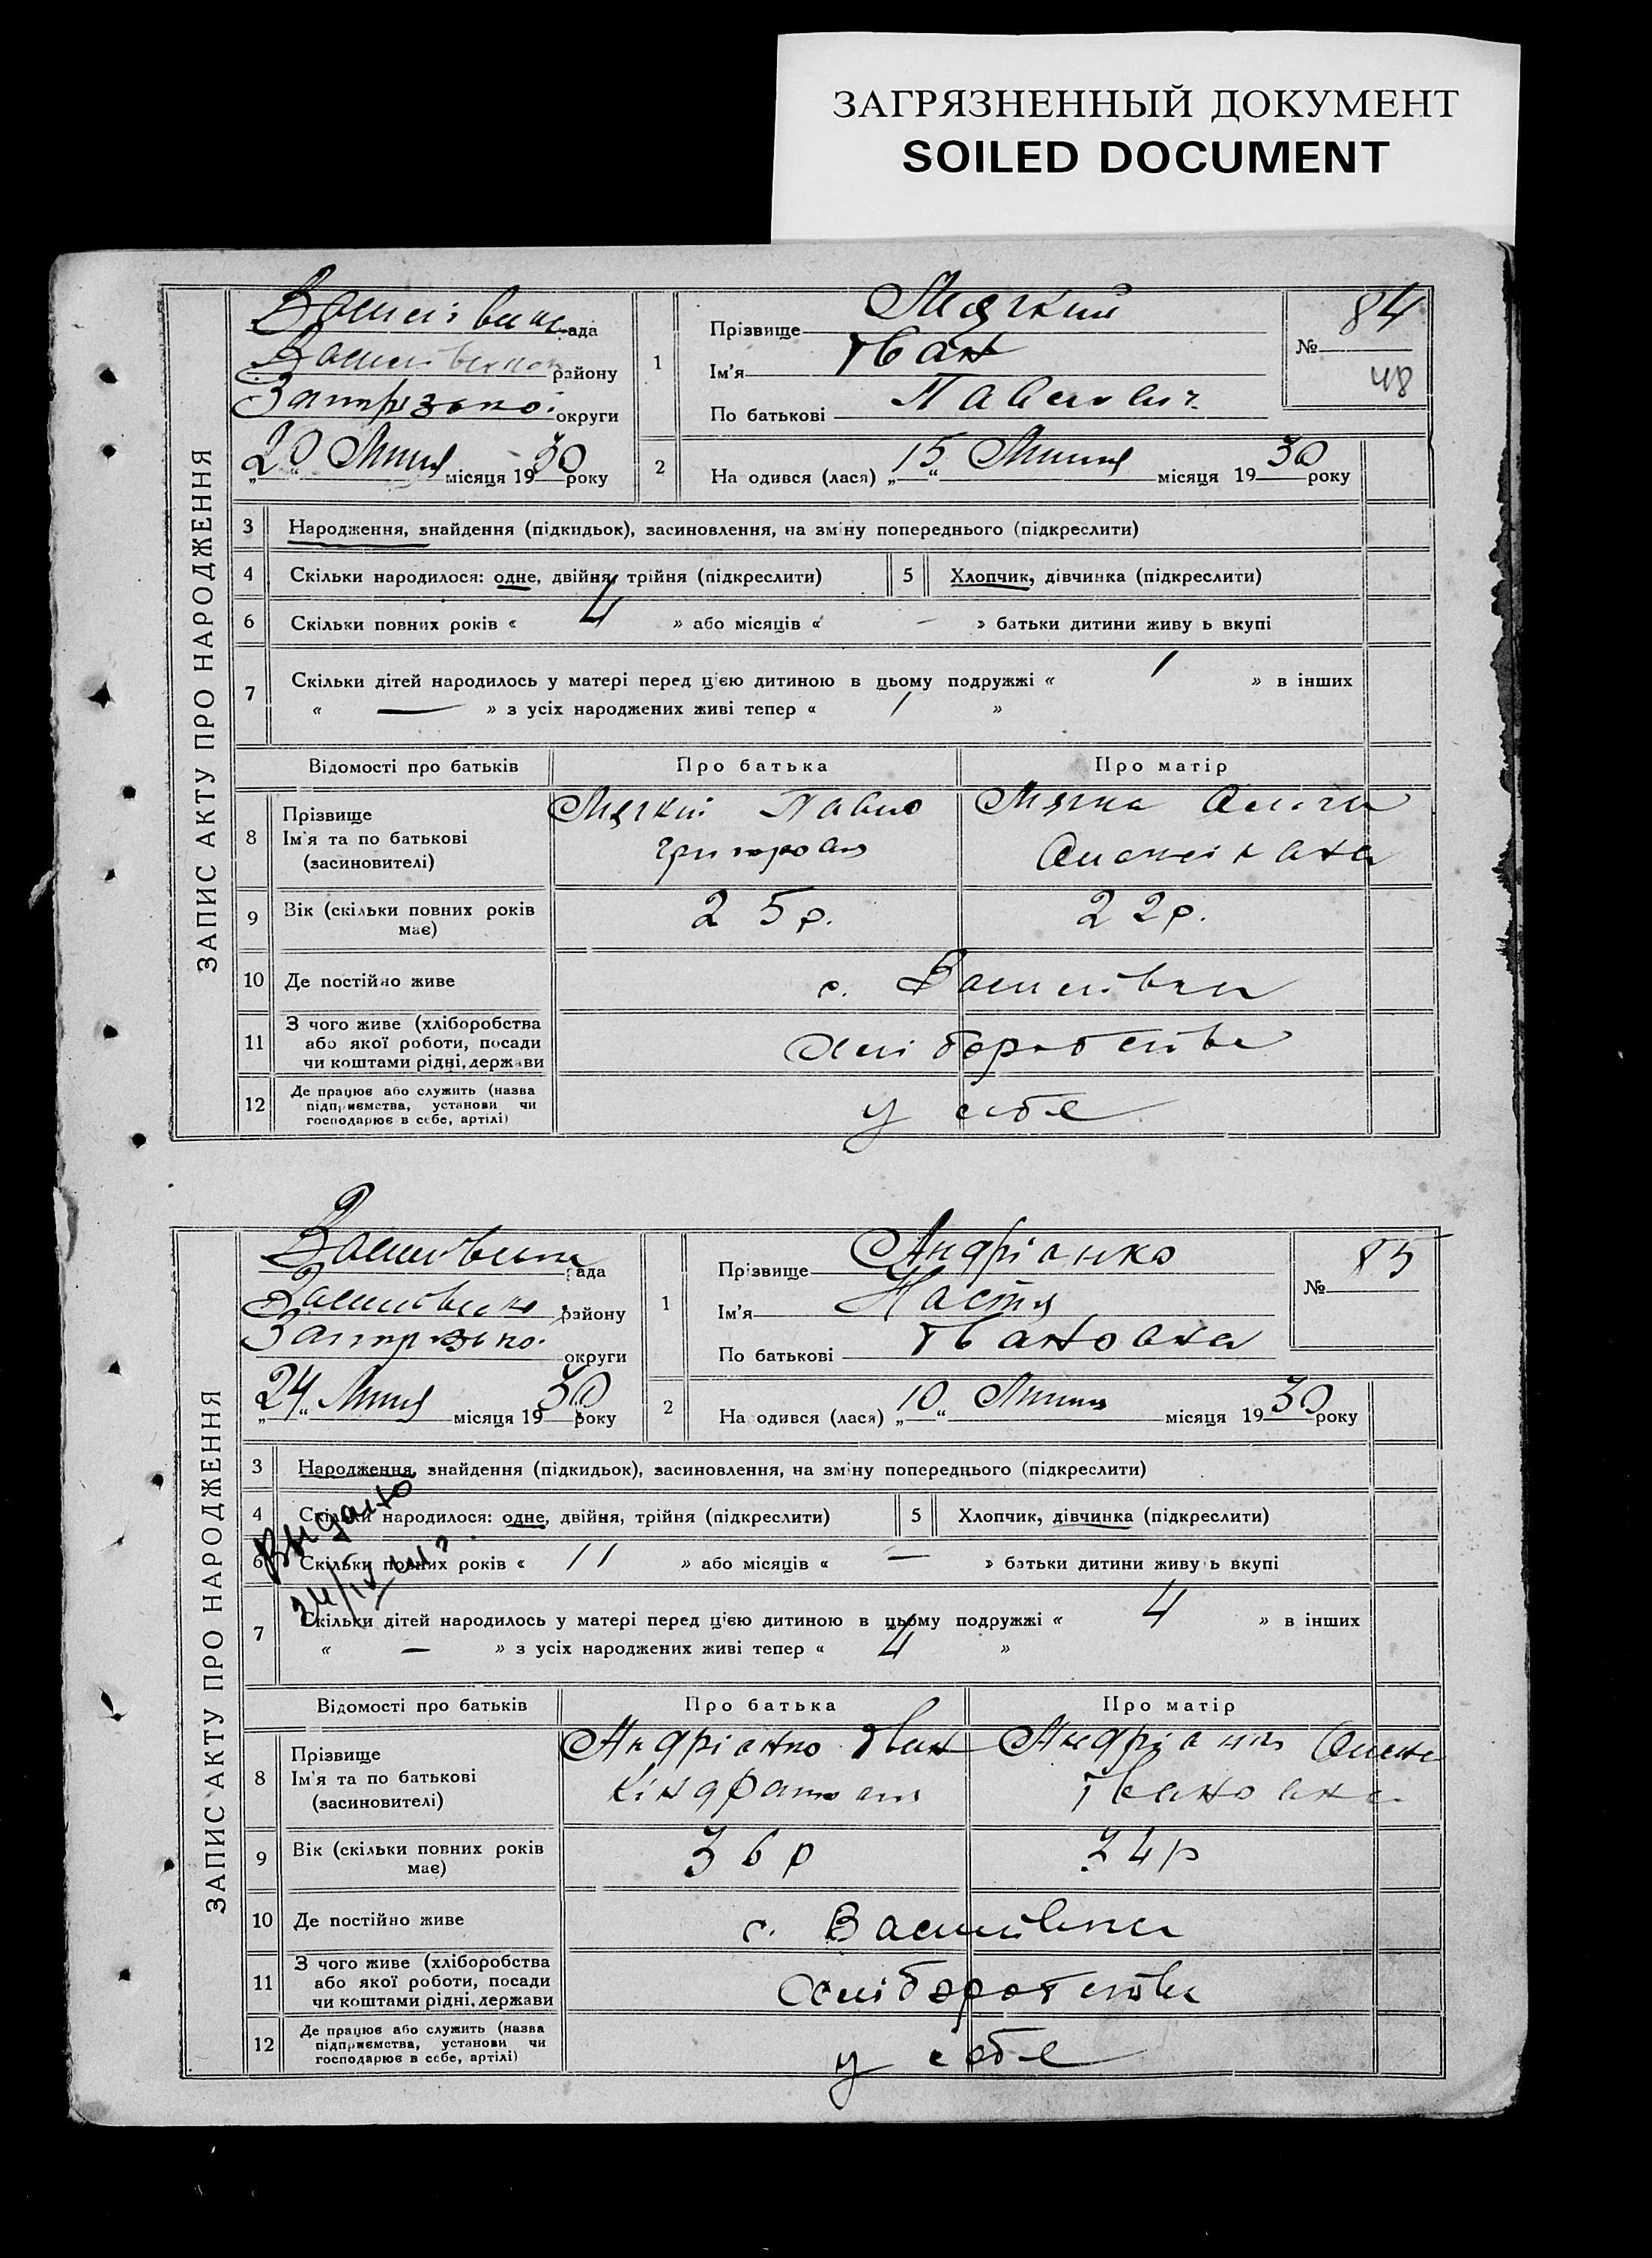 ЗАГРЯЗНЕННЫЙ ДОКУМЕНТ
SOILED DOCUMENT
ЗАПИС АКТУ ПРО НАРОДЖЕННЯ
Василівська рада
Василівського району
Запорізької округи
„20“ Липця місяця 1930 року
1
Прізвище Мягкий
Ім'я Іван
По батькові Павлович
№ 84
48
2
На одився (лася) „15“ Липця місяця 1930 року
3 Народження, знайдення (підкидьок), засиновлення, на зміну попереднього (підкреслити)
4 Скільки народилося: одне, двійня, трійня (підкреслити) 5 Хлопчик, дівчинка (підкреслити)
6 Скільки повних років « 4 » або місяців « — » батьки дитини живу ь вкупі
7 Скільки дітей народилось у матері перед цією дитиною в цьому подружжі « 1 » в інших
« — » з усіх народжених живі тепер « 1 »
Відомості про батьків Про батька Про матір
8 Прізвище
Ім'я та по батькові
(засиновителі)
Мягкий Павло
Григоров
Мягка Ольга
9 Вік (скільки повних років
має)
25 р. 22 р.
10 Де постійно живе с. Василівка
11 З чого живе (хліборобства
або якої роботи, посади
чи коштами рідні, держави
Хліборобства
12 Де працює або служить (назва
підприємства, установи чи
господарює в себе, артілі)
у себе
ЗАПИС АКТУ ПРО НАРОДЖЕННЯ
Василівська рада
Василівського району
Запорізької округи
„24“ Липця місяця 1930 року
1
Прізвище Андріанко
Ім'я Настя
По батькові Івановна
№ 85
2
На одився (лася) „10“ Липця місяця 1930 року
3 Народження, знайдення (підкидьок), засиновлення, на зміну попереднього (підкреслити)
4 Скільки народилося: одне, двійня, трійня (підкреслити) 5 Хлопчик, дівчинка (підкреслити)
Видано
6 Скільки повних років « 11 » або місяців « — » батьки дитини живу ь вкупі
7 Скільки дітей народилось у матері перед цією дитиною в цьому подружжі « 4 » в інших
« — » з усіх народжених живі тепер « 4 »
Відомості про батьків Про батька Про матір
8 Прізвище
Ім'я та по батькові
(засиновителі)
Андріанко Іван
Кіндратов
Андріанко Олена
Івановна
9 Вік (скільки повних років
має)
36 р 34 р
10 Де постійно живе с. Василівка
11 З чого живе (хліборобства
або якої роботи, посади
чи коштами рідні, держави
Хліборобства
12 Де працює або служить (назва
підприємства, установи чи
господарює в себе, артілі)
у себе